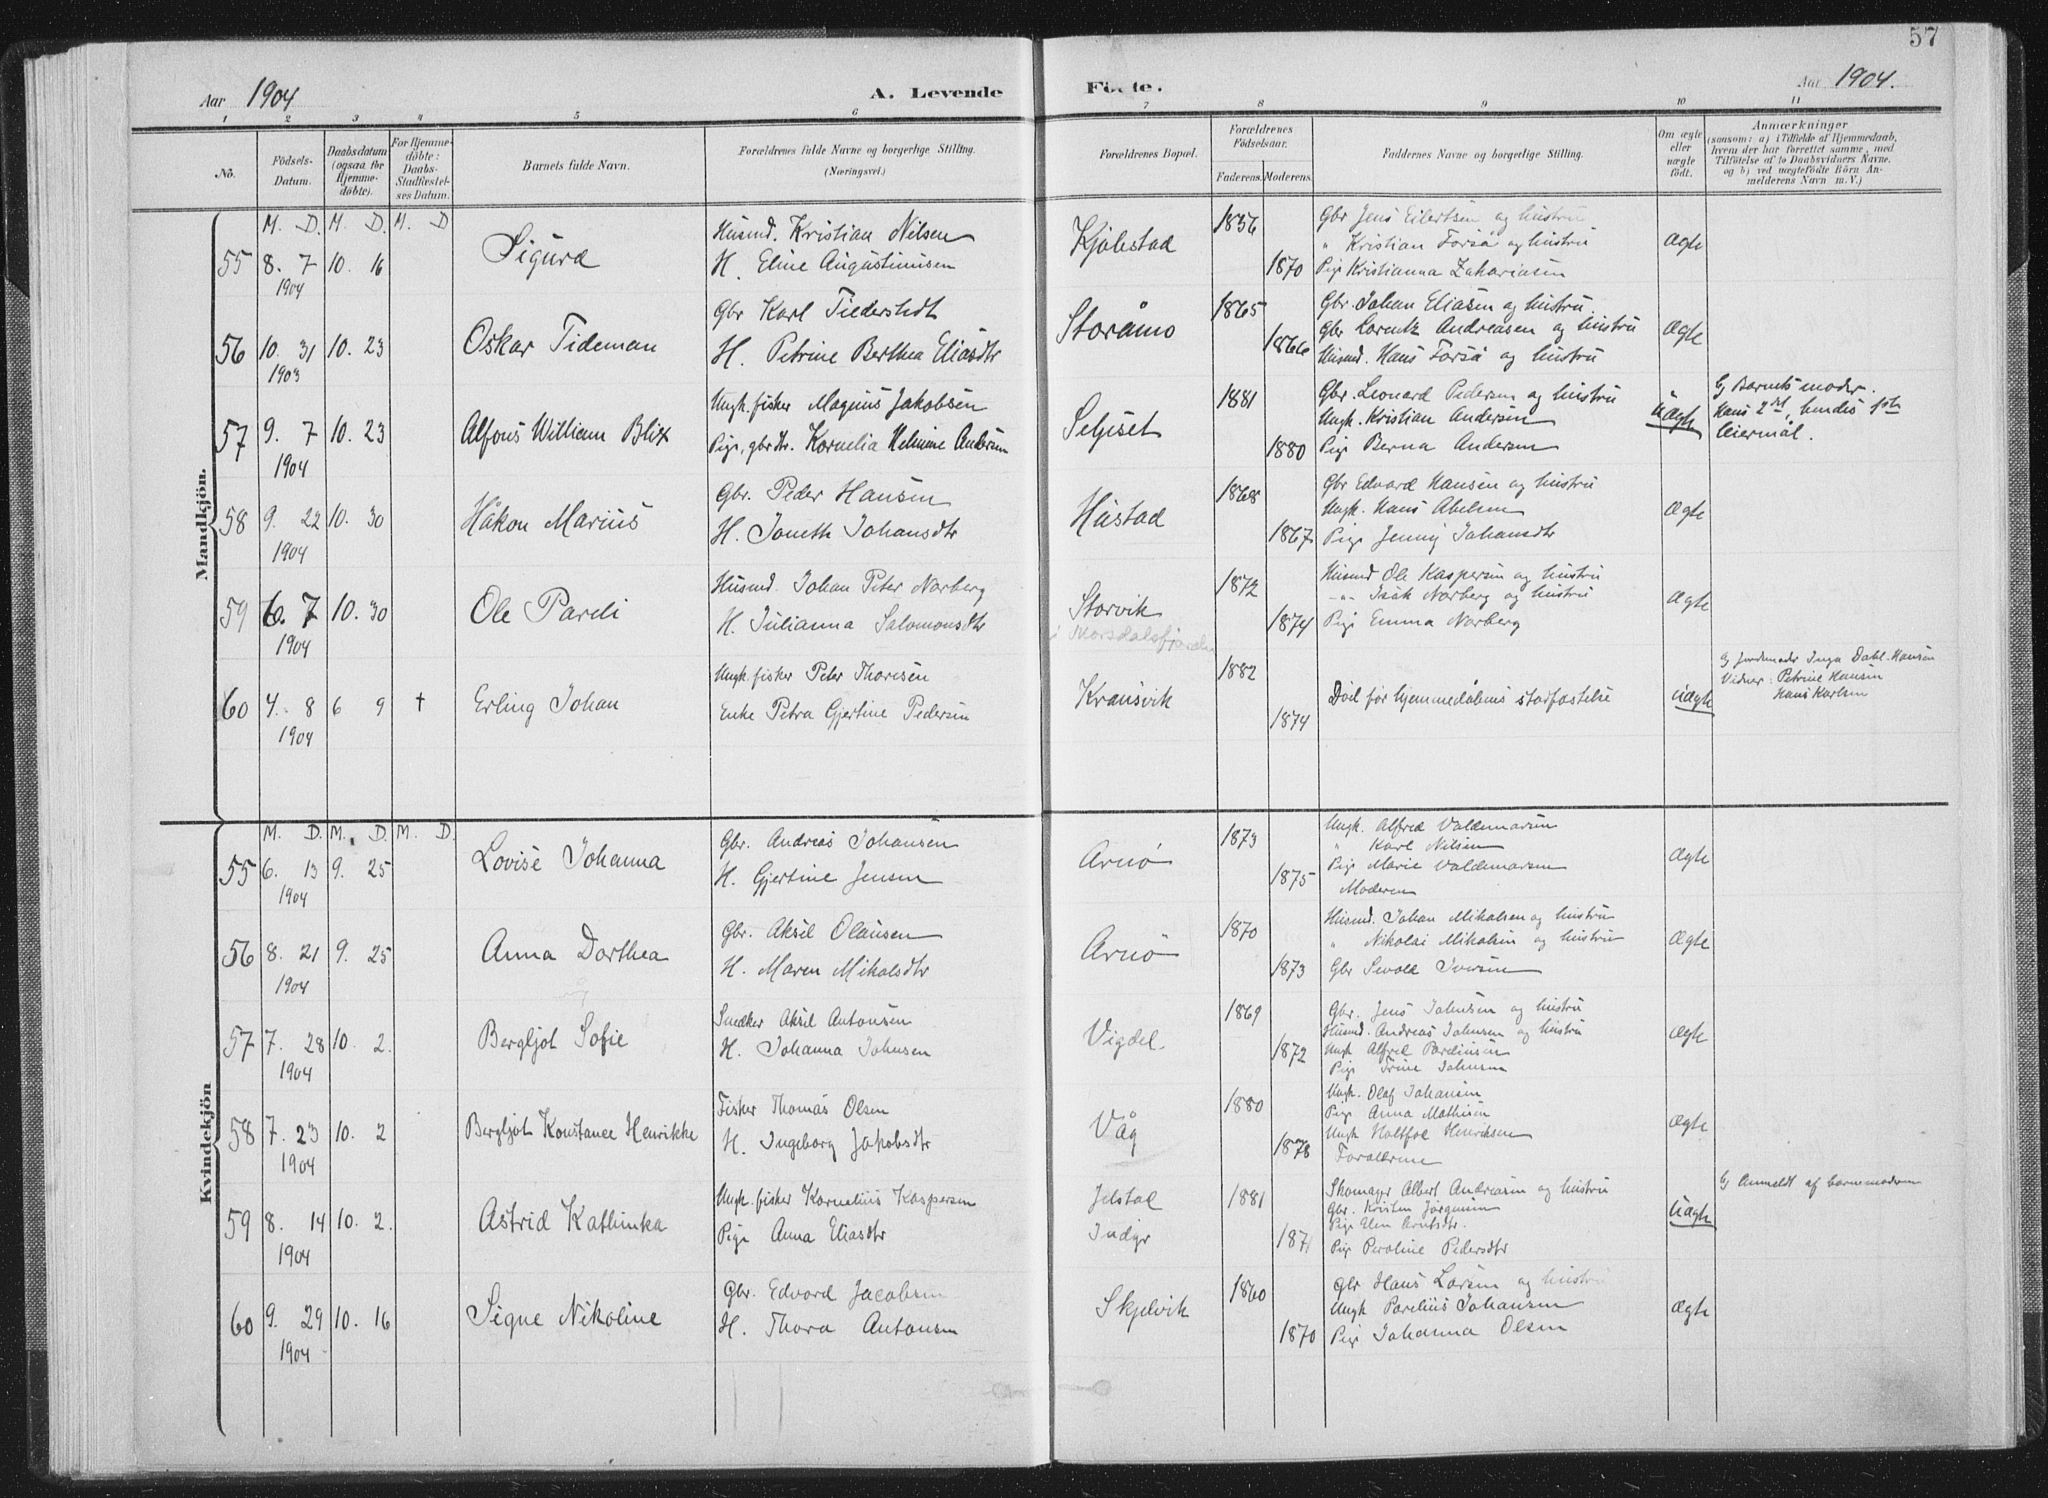 57
Aar 1904 A. Levende Födte. Aar 1904.
1 2 3 4 5 6 7 8 9 10 11
No.
Födsels-Datum.
Daabsdatum (ogsaa for Hjemmedöbte).
For Hjemmedöbte: Daabs-Stadfæstelses Datum.
Barnets fulde Navn.
Forældrenes fulde Navne og borgerlige Stilling.
(Næringsvei.)
Forældrenes Bopæl.
Forældrenes Födselsaar.
Faderens. Moderens.
Faddernes Navne og borgerlige Stilling.
Om ægte eller uægte födt.
Anmærkninger
(saasom: a) i Tilfælde af Hjemmedaab, hvem der har forrettet samme, med Tilföielse af to Daabsvidners Navne, og b) ved uægtefödte Börn Anmelderens Navn m. V.)
Mandkjön.
M. D. M. D. M. D
55 8. 7 1904 10. 16 Sigurd
Husmd. Kristian Nilsen
H. Eline Augustinusen
Kjölstad 1856 1870
Gbr Jens Eilertsen og hustru
" Kristian Forså og hustru
Pige Kristianna Zakariasen
Ægte
56 10. 31 1903 10. 23 Oskar Tideman
Gbr Karl Tiederstedt
H. Petrine Berthea Eliasdtr
Storåmo 1865 1866
Gbr. Johan Eliasen og hustru.
Gbr Lorentz Andreasen og hustru
Husmd. Hans Forså og hustru
Ægte
57 9. 7 1904 10. 23 Alfons William Blix
Ungk. fisker Magnus Jakobsen
Pige, gbrdtr. Kornelia Helmine Andersen
Seljeset 1881 1880
Gbr. Leonard Pedersen og hustru
Ungk. Kristian Andersen
Pige Berna Andersen
Uægte
Barnets moder.
Hans 2det, hendes 1ste
leiermål.
58 9. 22 1904 10. 30 Håkon Marius
Gbr. Peder Hansen
H. Joneth Johansdtr
Håstad 1868 1867
Gbr Edvard Hansen og hustru
Ungk. Hans Abelsen
Pige Jenny Johansdtr
Ægte
59 6. 7 1904 10. 30 Ole Pareli
Husmd Johan Peter Norberg
H. Julianna Salomonsdtr
Storvik
i Morsdalsfjorden
1872 1874
Husmd Ole Kaspersen og hustru
-"- Isak Norberg og hustru
Pige Emma Norberg
Ægte
60 4. 8 1904 6 9 † Erling Johan
Ungk. fisker Peter Thoresen
Enke Petra Gjertine Pedersen
Kransvik 1882 1874
Död før hjemmedåbens stadfæstelse
Uægte
Jordemoder Inga Dahl-Hansen
Vidner: Petrine Hansen
Hans Karlsen
Kvindekjön
M. D. M. D. M. D.
55 6. 13 1904 9. 25 Lovise Johanna
Gbr. Andreas Johansen
H. Gjertine Jensen
Arnø 1873 1875
Ungk. Alfred Valdemarsen
" Karl Nilsen
Pige Marie Valdemarsen
Moderen
Ægte
56 8. 21 1904 9. 25 Anna Dorthea
Gbr. Aksel Olausen
H. Maren Mikalsdtr
Arnø 1870 1873
Husmd. Johan Mikalsen og hustru
" Nikolai Mikalsen og hustru
Gbr Sevald Iversen
Ægte
57 7. 28 1904 10. 2. Bergljot Sofie
Snedker Aksel Antonsen
H. Johanna Johnsen
Vigdel. 1869 1872
Gbr. Jens Johnsen og hustru
Husmd. Andreas Johnsen og hustru
Ungk Alfred Pareliusen
Pige Trine Johnsen
Ægte
58 7. 23 1904 10. 2 Bergljot Konstance Henrikke
Fisker Thomas Olsen
H. Ingeborg Jakobsdtr
Våg 1880 1878
Ungk. Olaf Johansen
Pige Anna Mathisen
Ungk Halfdal Henriksen
Forældrene
Ægte
59 8. 14 1904 10. 2. Astrid Kathinka
Ungk. fisker Kornelius Kaspersen
Pige Anna Eliasdtr
Jelstad
Indyr
1881 1871
Skomager Albert Andreasen og hustru
Gbr. Kristen Jørgensen
Pige Elen Arntsdtr.
Pige Peroline Pedersdtr
Uægte
Anmeldt af barnemoderen
60 9. 29 1904 10. 16 Signe Nikoline
Gbr. Edvard Jacobsen
H. Thora Antonsen
Skjelvik 1860 1870
Gbr Hans Larsen og hustru
Ungk Parelius Johansen
Pige Johanna Olsen
Ægte